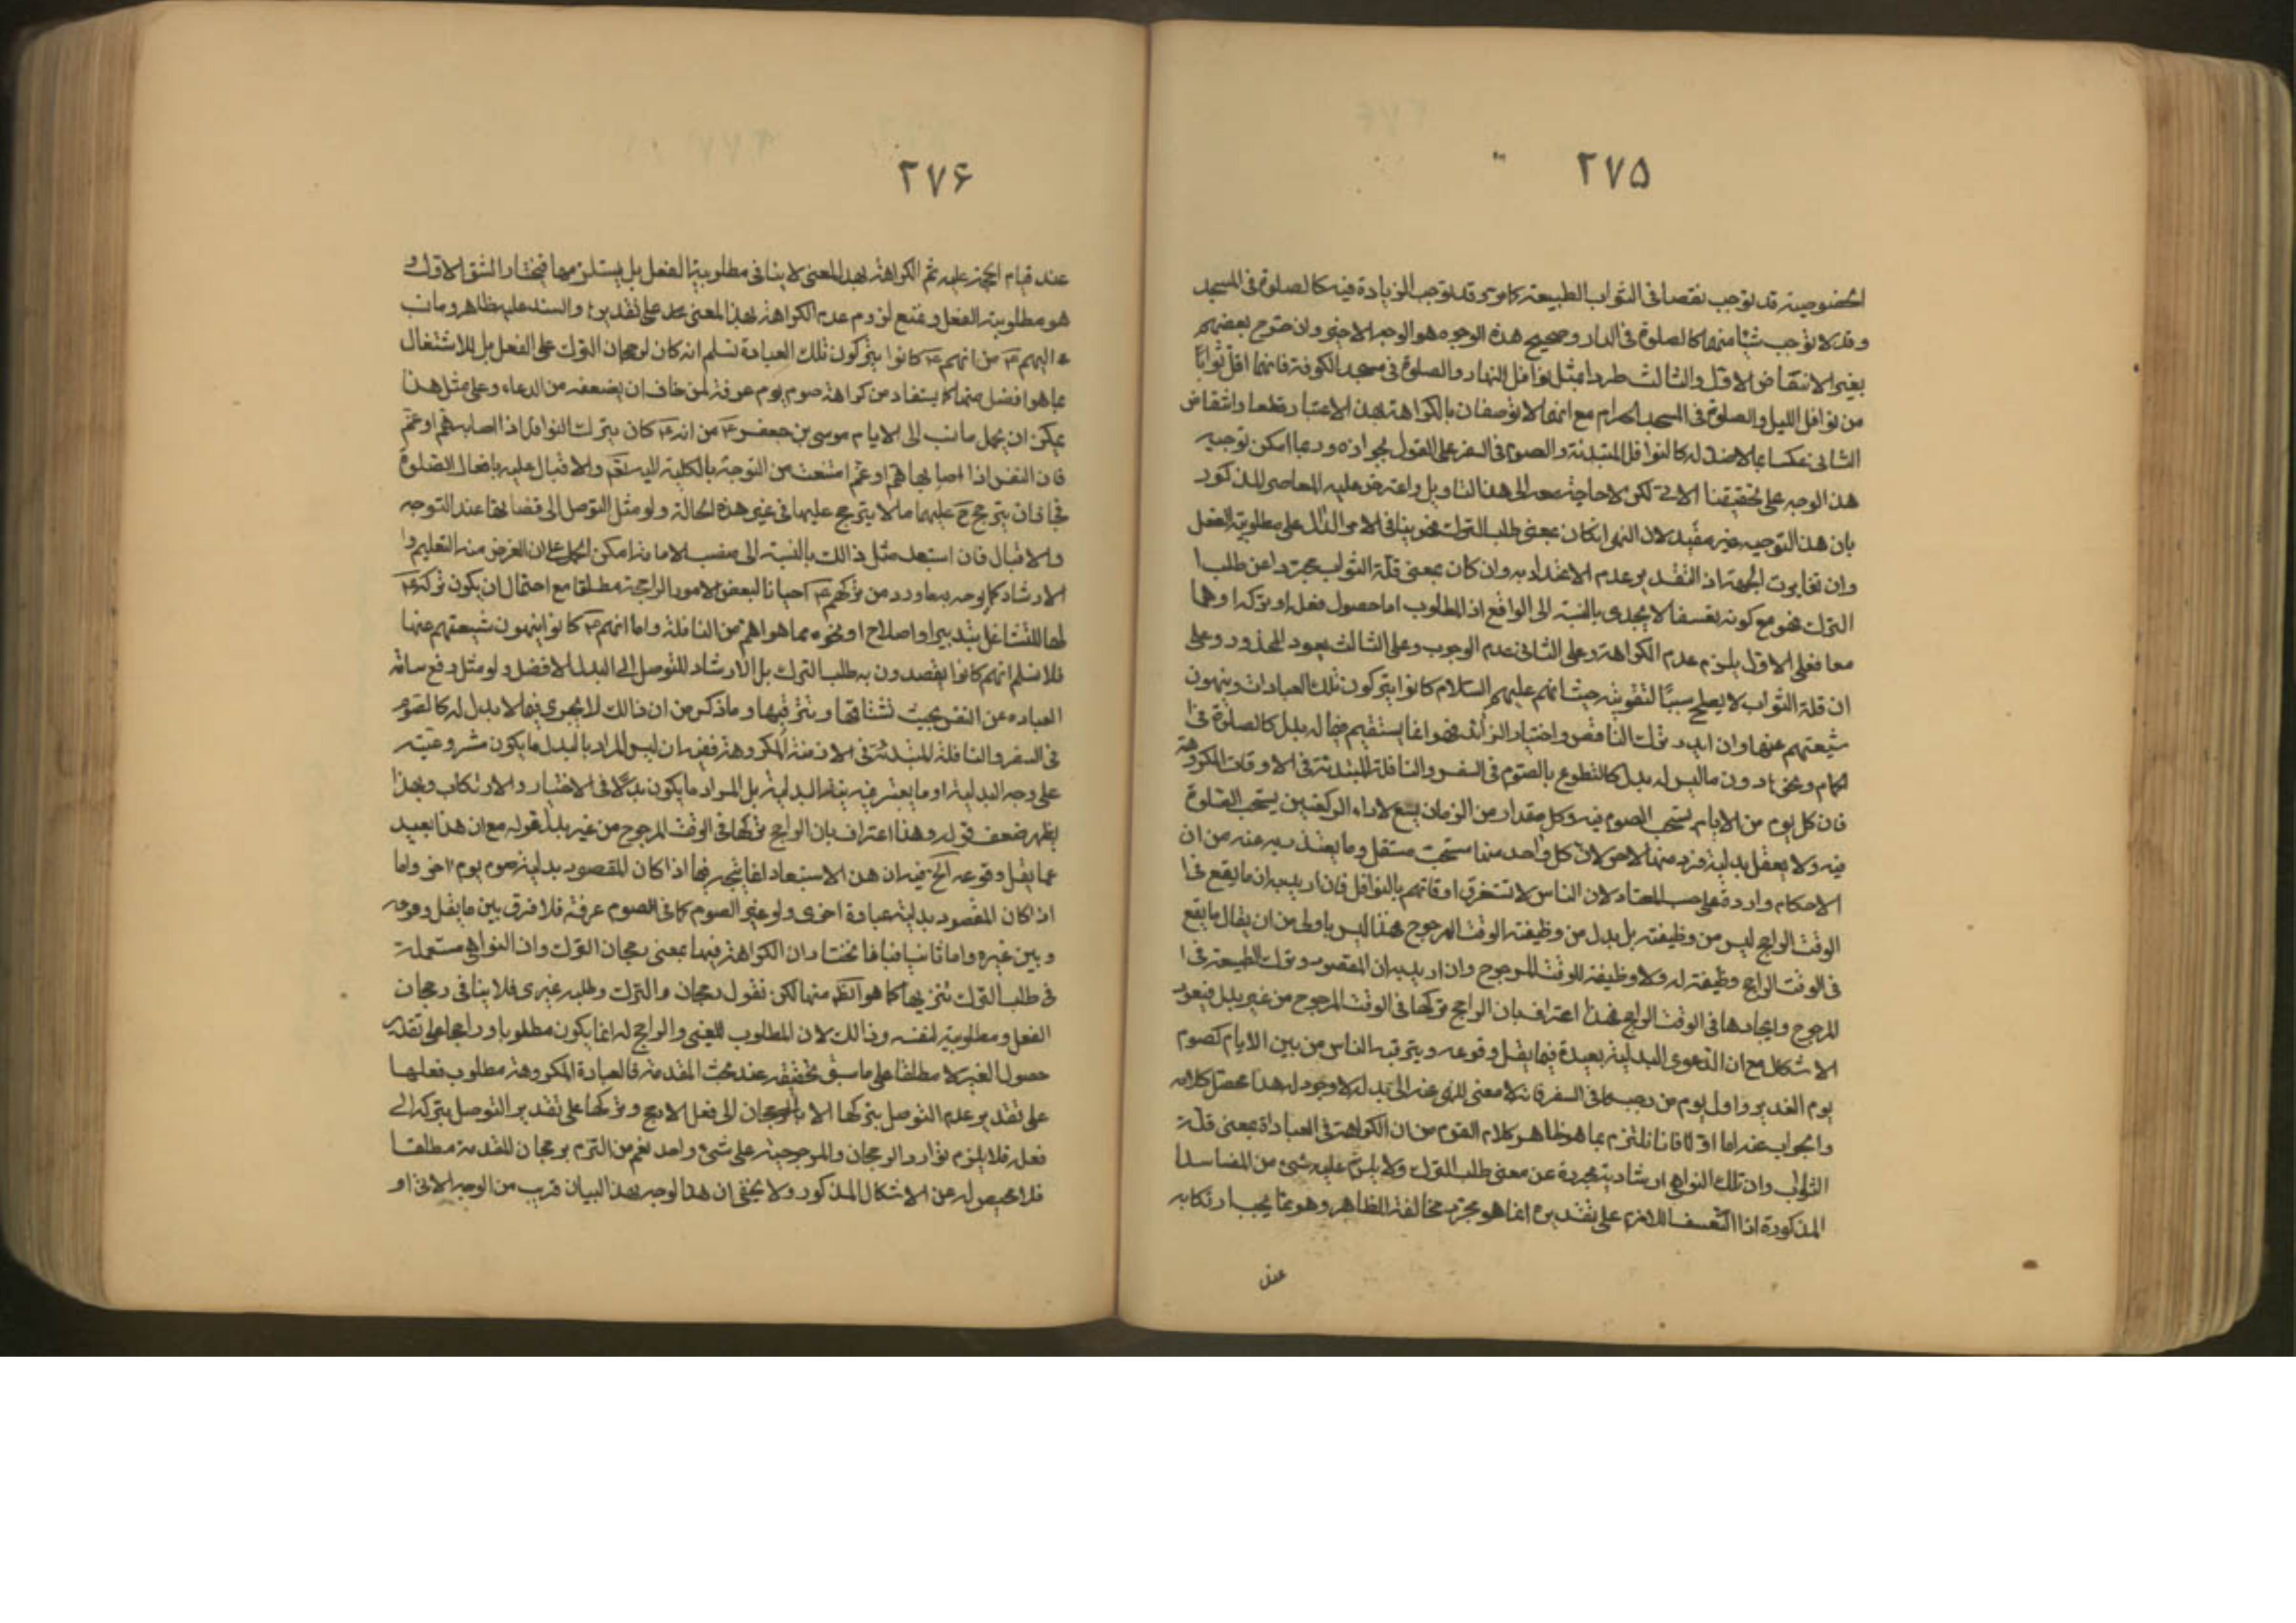 ٢٧۵
الخصوصية قد توجب نقصا فى الثواب الطبيعة كما مر وقد توجب الزيادة فيه كالصلوة فى المسجد
وقد لا توجب شيئا منهما كالصلوة فى الدار وصحيح هذه الوجوه هو الوجه الاخير وان صرح بعضهم
بغيره لانتقاض الاول والثالث طردا بمثل نوافل النهار والصلوة فى مسجد الكوفة فانهما اقل ثوابا
من نوافل الليل والصلوة فى المسجد الحرام مع انهما لا توصفان بالكراهة بهذا الاعتبار قطعا وانتقاض
الثانى عكسا بما لا ضد له كالنوافل المبتدئة والصوم فى السفر على القول بجوازه وربما امكن توجيه
هذا الوجه على تحقيقنا الاتى لكن لا حاجة معه الى هذا التاويل واعترض عليه المعاصر المذكور
بان هذا التوجيه غير مفيد لان النهى ان كان بمعنى طلب الترك فهو ينافى الامر الدال على مطلوبية الفعل
وان تغايرت الجهة اذ التقدير عدم الاعتداد به وان كان بمعنى قلة الثواب مجردا عن طلب ا
الترك فهو مع كونه تعسفا لا يجدى بالنسبة الى الواقع اذ المطلوب اما حصول فعله او تركه او هما
معا فعلى الاول يلزم عدم الكراهة وعلى الثانى عدم الوجوب وعلى الثالث يعود المحذور وعلى
ان قلة الثواب لا يصلح سببا لتفويته حيث انهم عليهم السلام كانوا يتركون تلك العبادات وينهون
شيعتهم عنها وان اريد ترك الناقص واختيار الزائد فهو انما يستقيم فيما له بدل كالصلوة فى ا
الحمام ونحوه دون ما ليس له بدل كالتطوع بالصوم فى السفر والنافلة المبتدئة فى الاوقات المكروهة
فان كل يوم من الايام يستحب الصوم فيه وكل مقدار من الزمان يسع لاداء الركعتين يستحب الصلوة
فيه ولا يعقل بدلية فرد منها لاخر لان كل واحد منها مستحب مستقل وما يعتذر به عنه من ان
الاحكام واردة على حسب المعتاد لان الناس لا تستغرق اوقاتهم بالنوافل فان اريد به ان ما يقع فى ا
الوقت الراجح ليس من وظيفته بل بدل من وظيفة الوقت المرجوح فهذا ليس باولى من ان يقال ما يقع
فى الوقت الراجح وظيفة له ولا وظيفة للوقت المرجوح وان اريد به ان المقصود ترك الطبيعة فى ا
المرجوح وايجادها فى الوقت الراجح فهذا اعتراف بان الراجح تركها فى الوقت المرجوح من غير بدل فيعود
الاشكال مع ان الدعوى البدلية بعيدة فيما يقل وقوعه ويترقبه الناس من بين الايام كصوم
يوم الغدير واول يوم من رجب كما فى السفر فانه لا معنى للنهى عنه الى بدل لا وجود له هذا محصل كلامه
والجواب عنه اما اولا فانا نلتزم بما هو ظاهر كلام القوم من ان الكراهة فى العبادة بمعنى قلة
الثواب وان تلك النواهى ارشادية مجردة عن معنى طلب الترك ولا يلزم عليه شئ من المفاسد ا
المذكورة اذ التعسف اللازم على تقديره انما هو مجرد مخالفة الظاهر وهو مما يجب ارتكابه
عند
٢٧۶
عند قيام الحجة عليه ثم الكراهة بهذا المعنى لا ينافى مطلوبية الفعل بل يستلزمها فيختار الشق الاول و
هو مطلوبية الفعل ونمنع لزوم عدم الكراهة بهذا المعنى على تقديره والسند عليه ظاهر وما نسب
اليهم ع من انهم ع كانوا يتركون تلك العبادة نسلم انه كان لرجحان الترك على الفعل بل للاشتغال
بما هو افضل منها كما يستفاد من كراهة صوم يوم عرفة لمن خاف ان يضعفه من الدعاء وعلى مثل هذا
يمكن ان يحمل ما نسب الى الامام موسى بن جعفر ع من انه ع كان يترك النوافل اذا اصابه هم او غم
فان النفس اذا اصابها هم او غم امتنعت من التوجه بالكلية اليه تعالى والاقبال عليه بافعال الصلوة
فجاز ان يترجح ح عليها ما لا يترجح عليها فى غير هذه الحالة ولو مثل التوصل الى قضائها عند التوجه
والاقبال فان استبعد مثل ذالك بالنسبة الى منصب الامامة امكن الحمل على ان الغرض منه التعليم وا
الارشاد كما يوجه به ما ورد من تركهم ع احيانا لبعض الامور الراجحة مطلقا مع احتمال ان يكون تركه ع
لها للتشاغل بتدبير او اصلاح او نحوه مما هو اهم من النافلة واما انهم ع كانوا ينهون شيعتهم عنها
فلا نسلم انهم كانوا يقصدون به طلب الترك بل الارشاد للتوصل الى البدل الافضل ولو مثل رفع سامة
العباده عن النفس بحيث تشتاقها وتترقبها وما ذكر من ان ذالك لا يجرى فيما لا بدل له كالصوم
فى السفر والنافلة المبتدئة فى الازمنة المكروهة ففيه ان ليس المراد بالبدل ما يكون مشروعيته
على وجه البدلية او ما يعتبر فيه نية البدلية بل المراد ما يكون بدلا فى الاختيار والارتكاب وبهذا
يظهر ضعف قوله وهذا اعتراف بان الراجح تركها فى الوقت المرجوح من غير بدل قوله مع ان هذا بعيد
عما يقل وقوعه الخ فيه ان هذا الاستبعاد انما يتجه فيما اذا كان المقصود بدلية صوم يوم اخر واما
اذا كان المقصود بدلية عبادة اخرى ولو غير الصوم كما فى الصوم عرفة فلا فرق بين ما يقل وقوعه
وبين غيره واما ثانيا فبانا نختار ان الكراهة فيها بمعنى رجحان الترك وان النواهى مستعملة
فى طلب الترك تنزيها كما هو الظ منها لكن نقول رجحان الترك وطلبه غيرى فلا ينافى رجحان
الفعل ومطلوبيته لنفسه وذالك لان المطلوب للغير والراجح له انما يكون مطلوبا وراجحا على تقدير
حصول الغير لا مطلقا على ما سبق تحقيقه عند بحث المقدمة فالعبادة المكروهة مطلوب فعلها
على تقدير عدم التوصل بتركها الى فعل الارجح وتركها على تقدير التوصل بتركه الى
فعله فلا يلزم توارد الرجحان والمرجوحية على شئ واحد نعم من التزم برجحان المقدمة مطلقا
فلا محيص له عن الاشكال المذكور ولا يخفى ان هذا الوجه بهذا البيان قريب من الوجه الاتى او